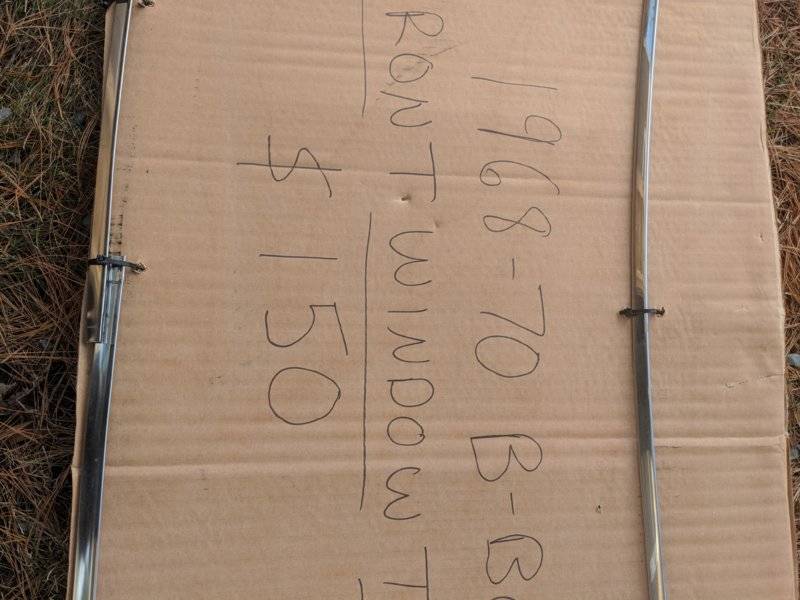 1968-70 B-B
RONT WINDOW T
$150